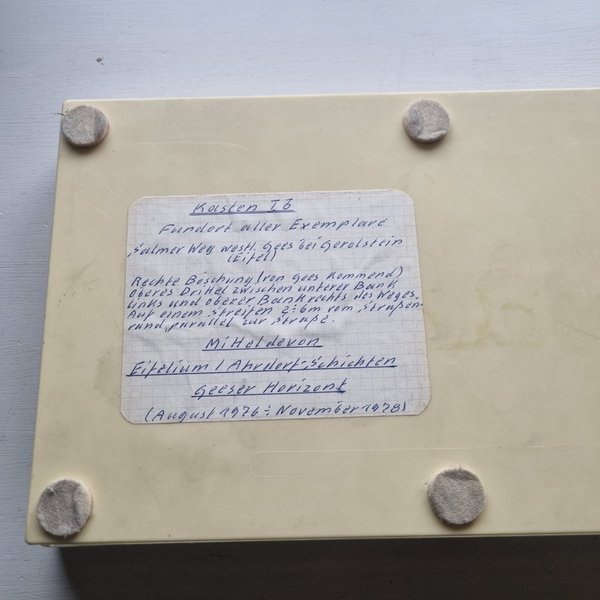 Kasten I B
Fundort aller Exemplare
Salmer Weg westl. Gees bei Gerolstein
(Eifel)
Rechte Böschung (von Gees kommend)
oberes Drittel zwischen unterer Bank
links und oberer Bank rechts des Weges.
Auf einem Streifen 2÷6m vom Straßen-
rand, parallel zur Straße.
Mitteldevon
Eifelium / Ahrdorf-Schichten
Geeser Horizont
(August 1976 ÷ November 1978)